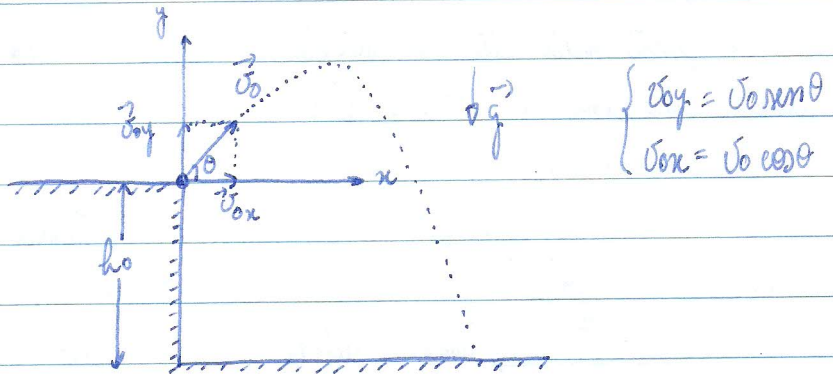 y
v⃗₀
v⃗₀y
θ
x
v⃗₀x
h₀
↓g⃗
{ v₀y = v₀ senθ
v₀x = v₀ cosθ